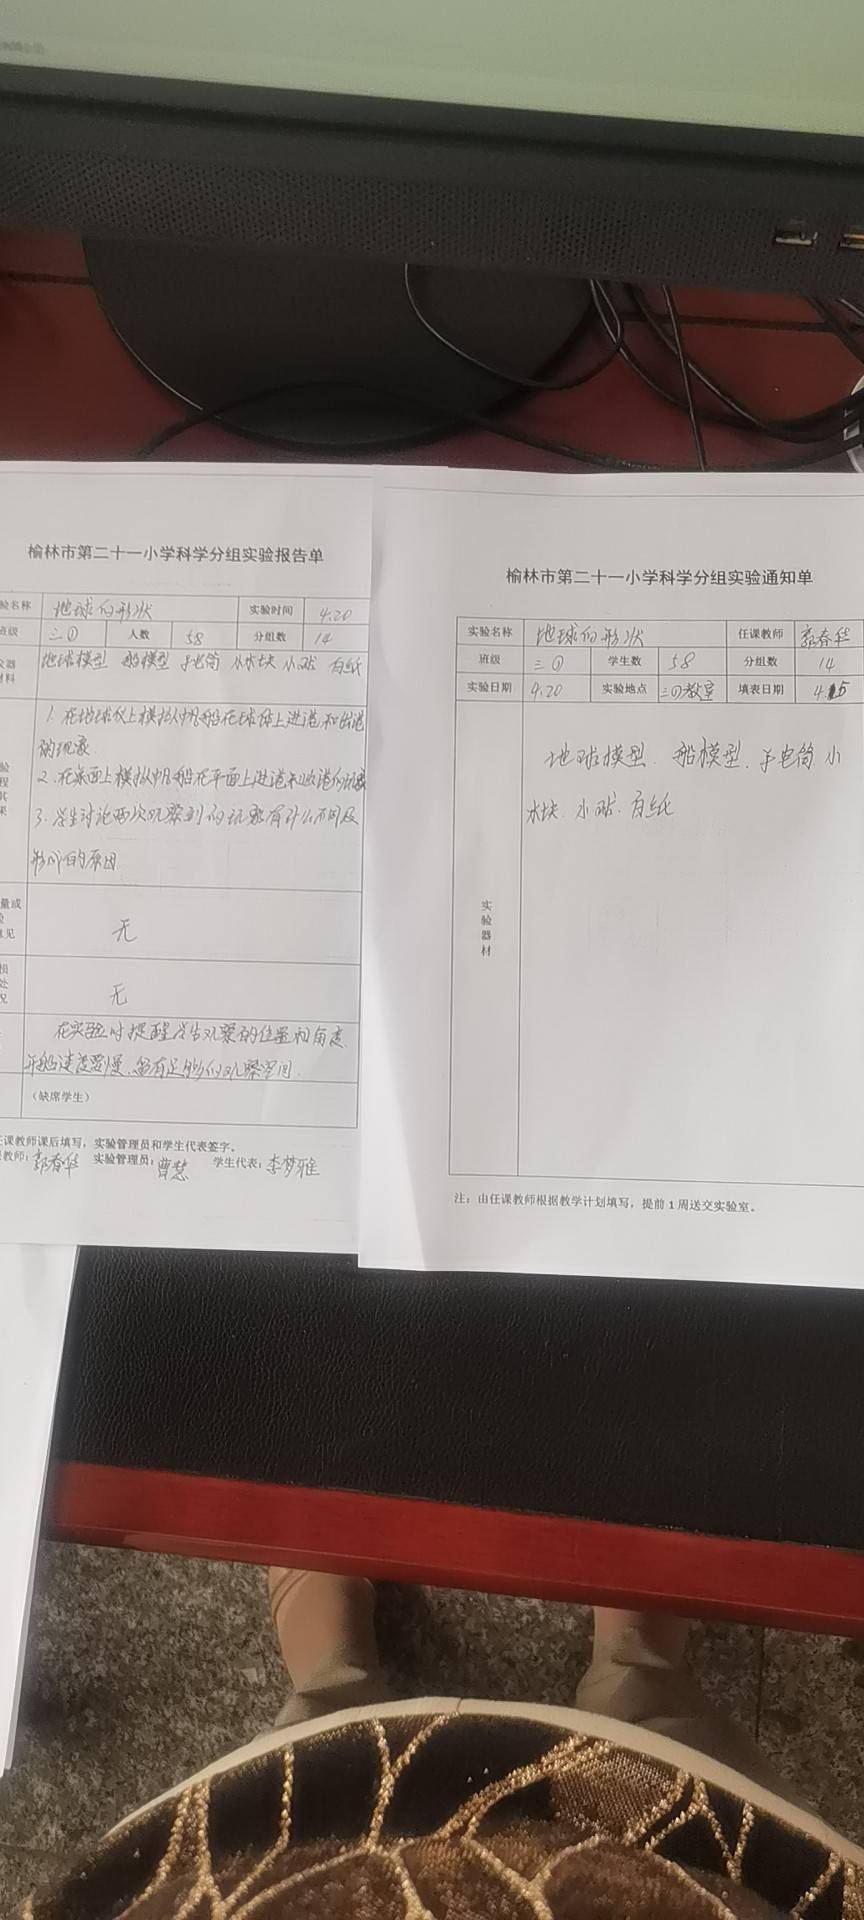 榆林市第二十一小学科学分组实验报告单
验名称 地球的形状 实验时间 4.20
班级 三① 人数 58 分组数 14
地球模型 船模型 手电筒 小木块 小球 白纸
1. 在地球仪上模拟帆船在球体上进港和出港
的现象.
2. 在桌面上模拟帆船在平面上进港和出港的现象
3. 学生讨论两次观察到的现象有什么不同及
形成的原因.
无
无
在实验时提醒学生观察的位置和角度.
开船速度要慢.留有足够的观察空间.
（缺席学生）
任课教师课后填写，实验管理员和学生代表签字。
教师：郭春华 实验管理员：曹慧 学生代表：李梦雅
榆林市第二十一小学科学分组实验通知单
实验名称 地球的形状 任课教师 郭春华
班级 三① 学生数 58 分组数 14
实验日期 4.20 实验地点 三①教室 填表日期 4.15
实验器材
地球模型. 船模型. 手电筒 小
木块. 小球. 白纸
注：由任课教师根据教学计划填写，提前1周送交实验室。